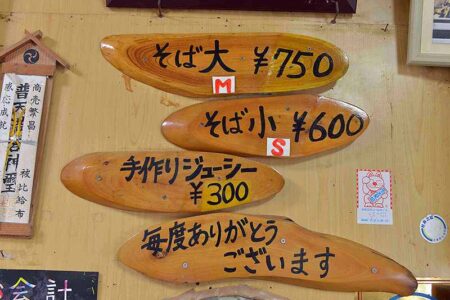 そば大 ¥750
M
そば小 ¥600
S
手作りジューシー
¥300
毎度ありがとう
ございます
商売繁昌
感応成就
会計